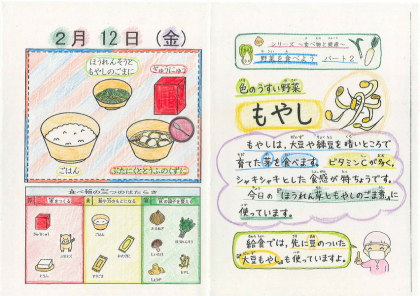 2月 12日 (金)
ほうれんそうと
もやしのごまに
ぎゅうにゅう
ごはん
ぶたにくととうふのくずに
食べ物の三つのはたらき
シリーズ ～食べ物と健康～
野菜を食べよう パート2
色のうすい野菜
もやし
もやしは、大豆や緑豆を暗いところで
育てた芽を食べます。ビタミンCが多く、
シャキシャキとした食感が特ちょうです。
今日の『ほうれん草ともやしのごま煮』に
使っています。
給食では、先に豆のついた
『大豆もやし』も使っていますよ。